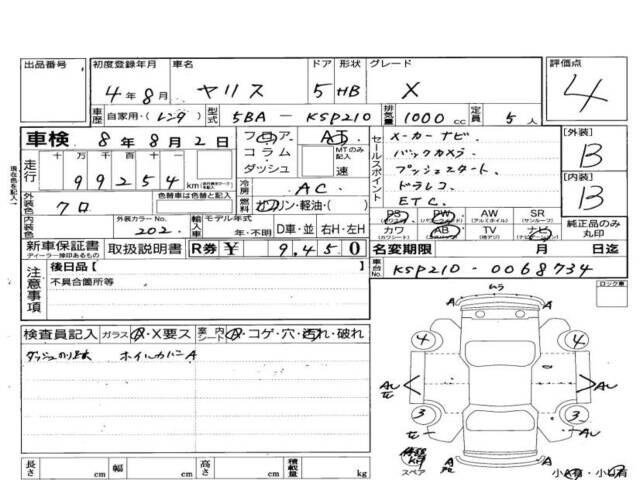 出品番号 初度登録年月 車名 ドア 形状 グレード 評価点
4年8月 ヤリス 5 HB X 4
車歴 自家用・(レンタ) 型式 5BA - KSP210 排気量 1000cc 定員 5人
車検 8年8月2日 フロア AT セールスポイント メーカーナビ. [外装]
現在色を記入→ 走行 十 万 千 百 十 コラム MTのみ記入 バックカメラ. B
99254km ダッシュ 速 プッシュスタート. [内装]
冷房 AC ドラレコ B
外装色 クロ 色替車は色替と記入 燃料 ガソリン・軽油・( ) ETC.
PS PW AW SR 純正品のみ丸印
内装色 外装カラーNo. 202. 輸入車 モデル年式 年・不明 D車・並 右H・左H カワ AB TV ナビ
新車保証書 取扱説明書 R券 ¥ 9,450 名変期限 月 日迄
ディーラー捺印あるもの
車台No. KSP210-0068734
注意事項 後日品【 】 ロック車
不具合箇所等 ムラ
A A
検査員記入 ガラス A・X要ス 室内シート A・コゲ・穴・汚れ・破れ
ダッシュのり跡大 ホイルカバーA
4 4
AU AU
3 3
A A
スペア
長さ cm 幅 cm 高さ cm 積載量 kg